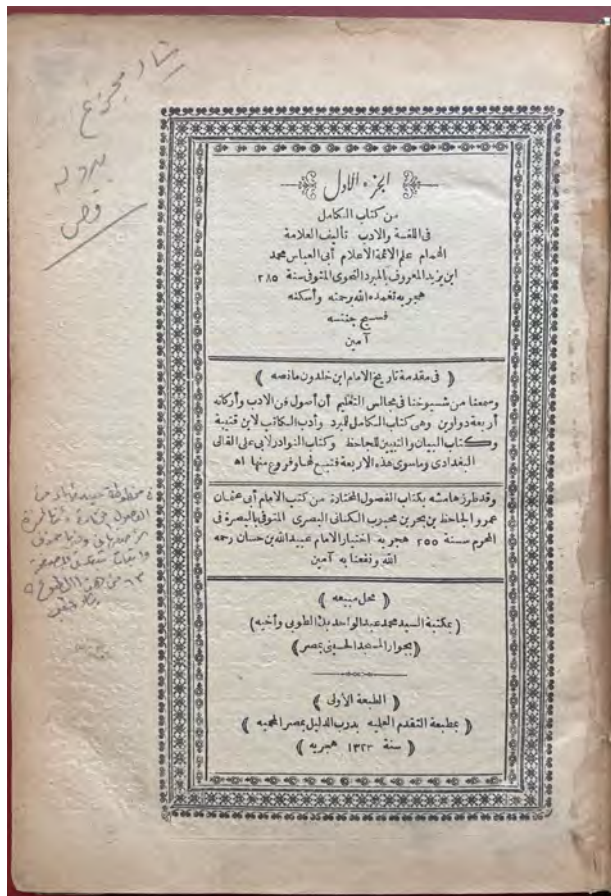 الجزء الاول
من كتاب الكامل
فى اللغة والادب تأليف العلامة
الهمام علم الائمة الأعلام أبى العباس محمد
ابن يزيد المعروف بالمبرد النحوى المتوفى سنة ٢٨٥
هجريه تغمده الله برحمته وأسكنه
فسيح جنته
آمين
﴿ فى مقدمة تاريخ الامام ابن خلدون مانصه ﴾
وسمعنا من شيوخنا فى مجالس التعليم أن أصول فن الادب وأركانه
أربعة دواوين وهى كتاب الكامل للمبرد وأدب الكاتب لابن قتيبة
وكتاب البيان والتبيين للجاحظ وكتاب النوادر لابى على القالى
البغدادى وماسوى هذه الاربعة فتبع لها وفروع منها اه
وقد طرز هامشه بكتاب الفصول المختارة من كتب الامام أبى عثمان
عمرو الجاحظ بن بحر بن محبوب الكنانى البصرى المتوفى بالبصرة فى
المحرم سنة ٢٥٥ هجريه اختيار الامام عبيد الله بن حسان رحمه
الله ونفعنا به آمين
﴿ محل مبيعه ﴾
(بمكتبة السيد محمد عبد الواحد بك الطوبى وأخيه)
﴿بجوار المسجد الحسينى بمصر﴾
﴿ الطبعة الأولى ﴾
﴿ بمطبعة التقدم العلميه بدرب الدليل بمصر المحميه ﴾
﴿ سنة ١٣٢٣ هجريه ﴾